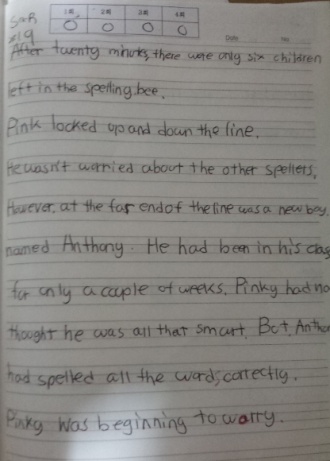 1회 2회 3회 4회
O O O O
Date No
After twenty minutes, there were only six children
left in the spelling bee.
Pink looked up and down the line.
He wasn't worried about the other spellers,
However, at the far end of the line was a new boy
named Anthony. He had been in his clas
for only a couple of weeks. Pinky had no
thought he was all that smart. But, Antho
had spelled all the words, correctly.
Pinky was beginning to worry.